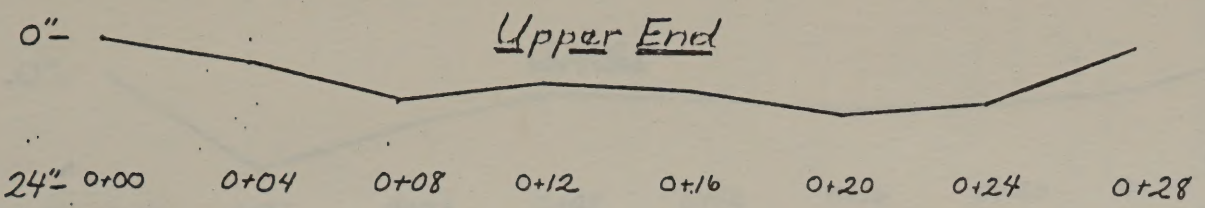 0"- Upper End
24"- 0+00 0+04 0+08 0+12 0+16 0+20 0+24 0+28